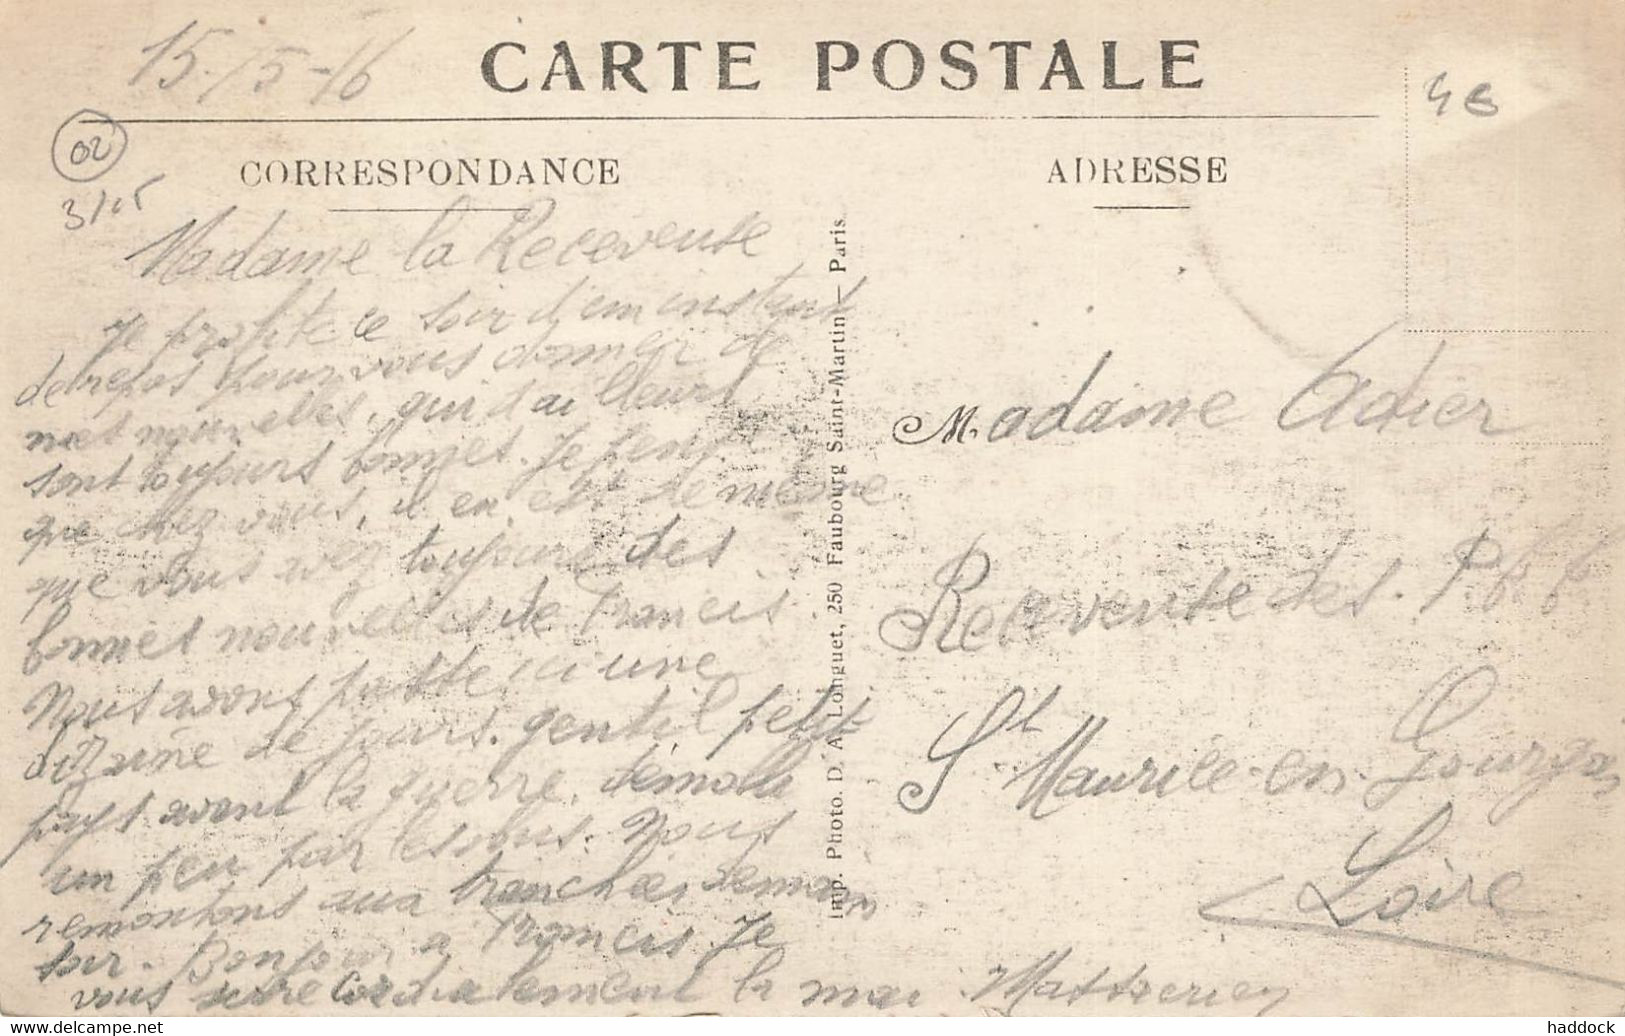 15-5-16
CARTE POSTALE
4€
02
CORRESPONDANCE
ADRESSE
Madame la Receveuse
Je profite ce soir d'un instant
de repos pour vous donner de
mes nouvelles, qui d'ailleurs
sont toujours bonnes. Je pense
que chez vous, il en est de même
que vous avez toujours des
bonnes nouvelles de Francis.
Nous avons passé ici une
dizaine de jours. gentil petit
pays avant la guerre, démoli
un peu par les obus. Nous
remontons aux tranchées demain
soir. Bonjour a Francis. Je
vous serre cordialement la main
Imp. Photo. D. A. Longuet, 250 Faubourg Saint-Martin — Paris
Madame Adier
Receveuse des
St Maurice-en-Gourgois
Loire
haddock
www.delcampe.net